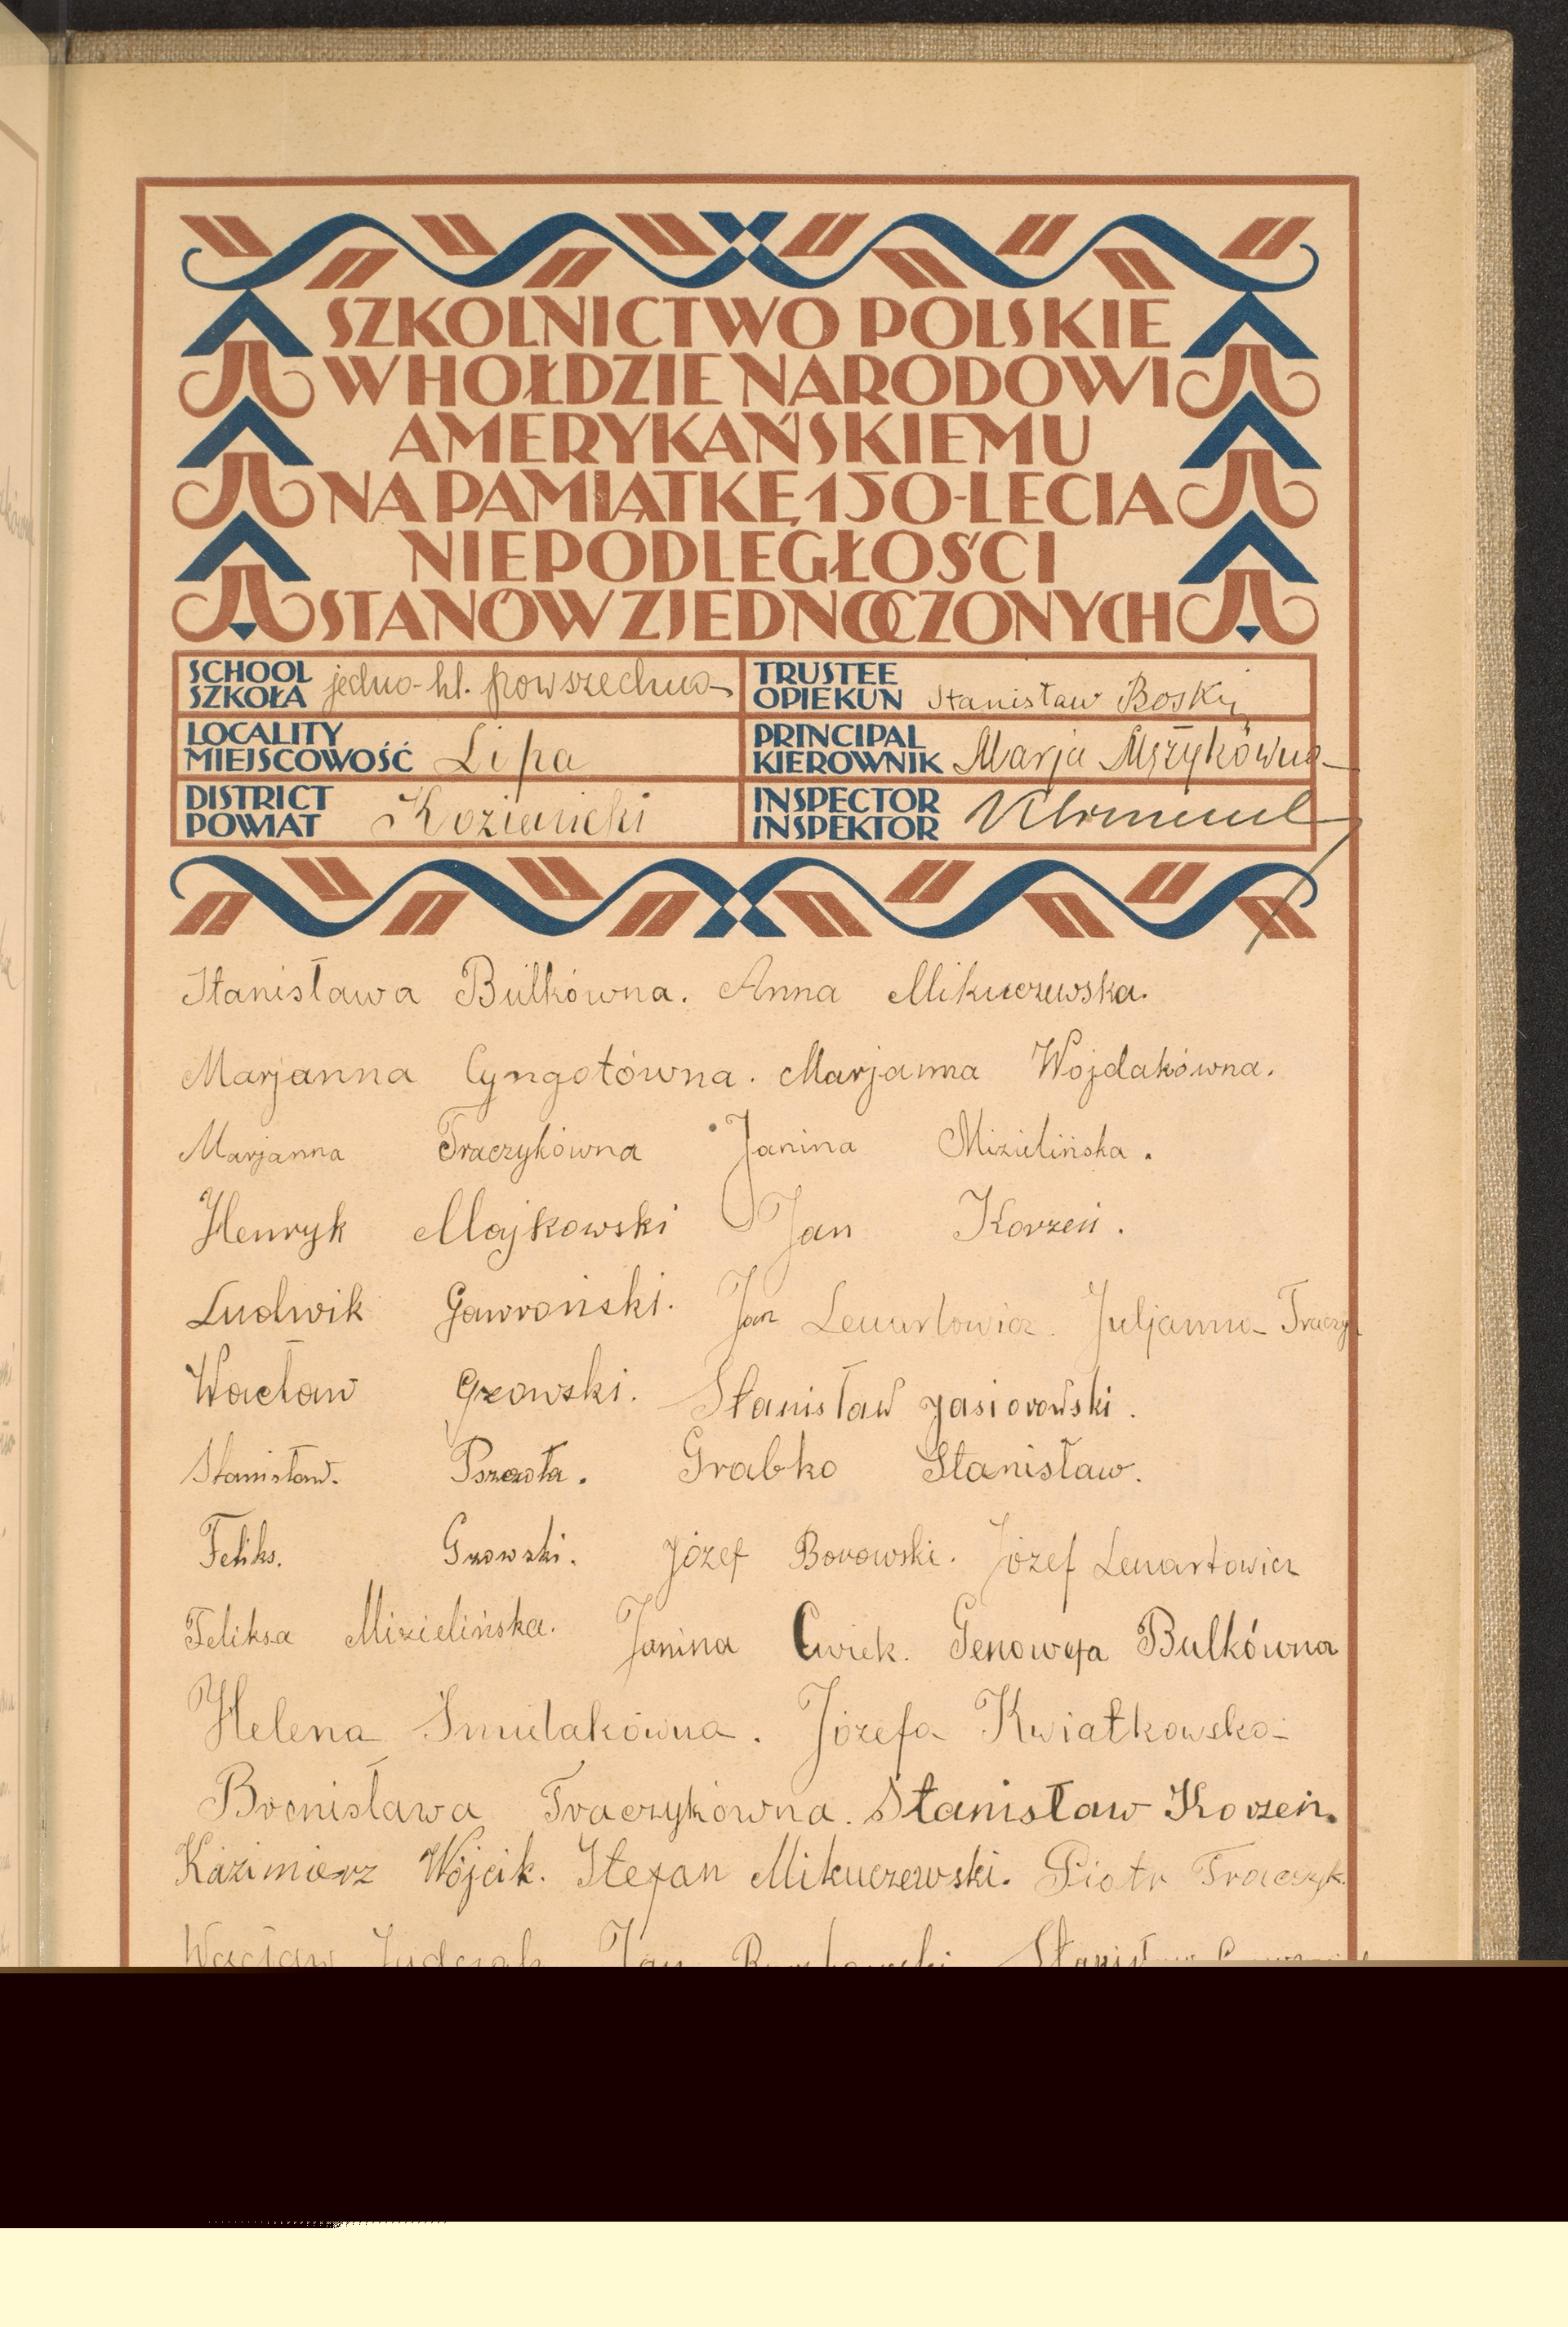 SZKOLNICTWO POLSKIE
W HOŁDZIE NARODOWI
AMERYKAŃSKIEMU
NA PAMIĄTKĘ 150-LECIA
NIEPODLEGŁOŚCI
STANÓW ZJEDNOCZONYCH
SCHOOL
SZKOŁA jedno-kl. powszechna
TRUSTEE
OPIEKUN Stanisław Boski
LOCALITY
MIEJSCOWOŚĆ Lipa
PRINCIPAL
KIEROWNIK Marja
DISTRICT
POWIAT Kozienicki
INSPECTOR
INSPEKTOR
Stanisława Bulkówna. Anna Mikuczewska.
Marjanna Cyngotówna. Marjanna Wojdakówna.
Marjanna Traczykówna Janina Mizielińska.
Henryk Majkowski Jan Korzeń.
Ludwik Gawroński. Jan Lenartowicz. Juljanna Traczyk
Wacław Gzowski. Stanisław Jasiorowski.
Stanisław. Pszczoła. Grabko Stanisław.
Feliks. Gzowski. Józef Borowski. Józef Lenartowicz
Feliksa Mizielińska. Janina Cwiek. Genowefa Bulkówna
Helena Śmietakówna. Józefa Kwiatkowska
Bronisława Traczykówna. Stanisław Korzeń.
Kazimierz Wójcik. Stefan Mikuczewski. Piotr Traczyk.
Wacław Jan Stanisław